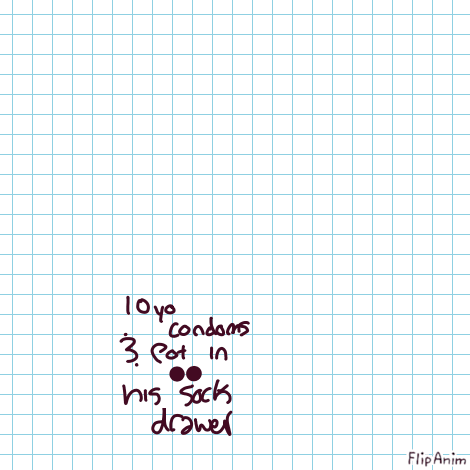 10yo
condoms
& Pot in
his sock
drawer
FlipAnim